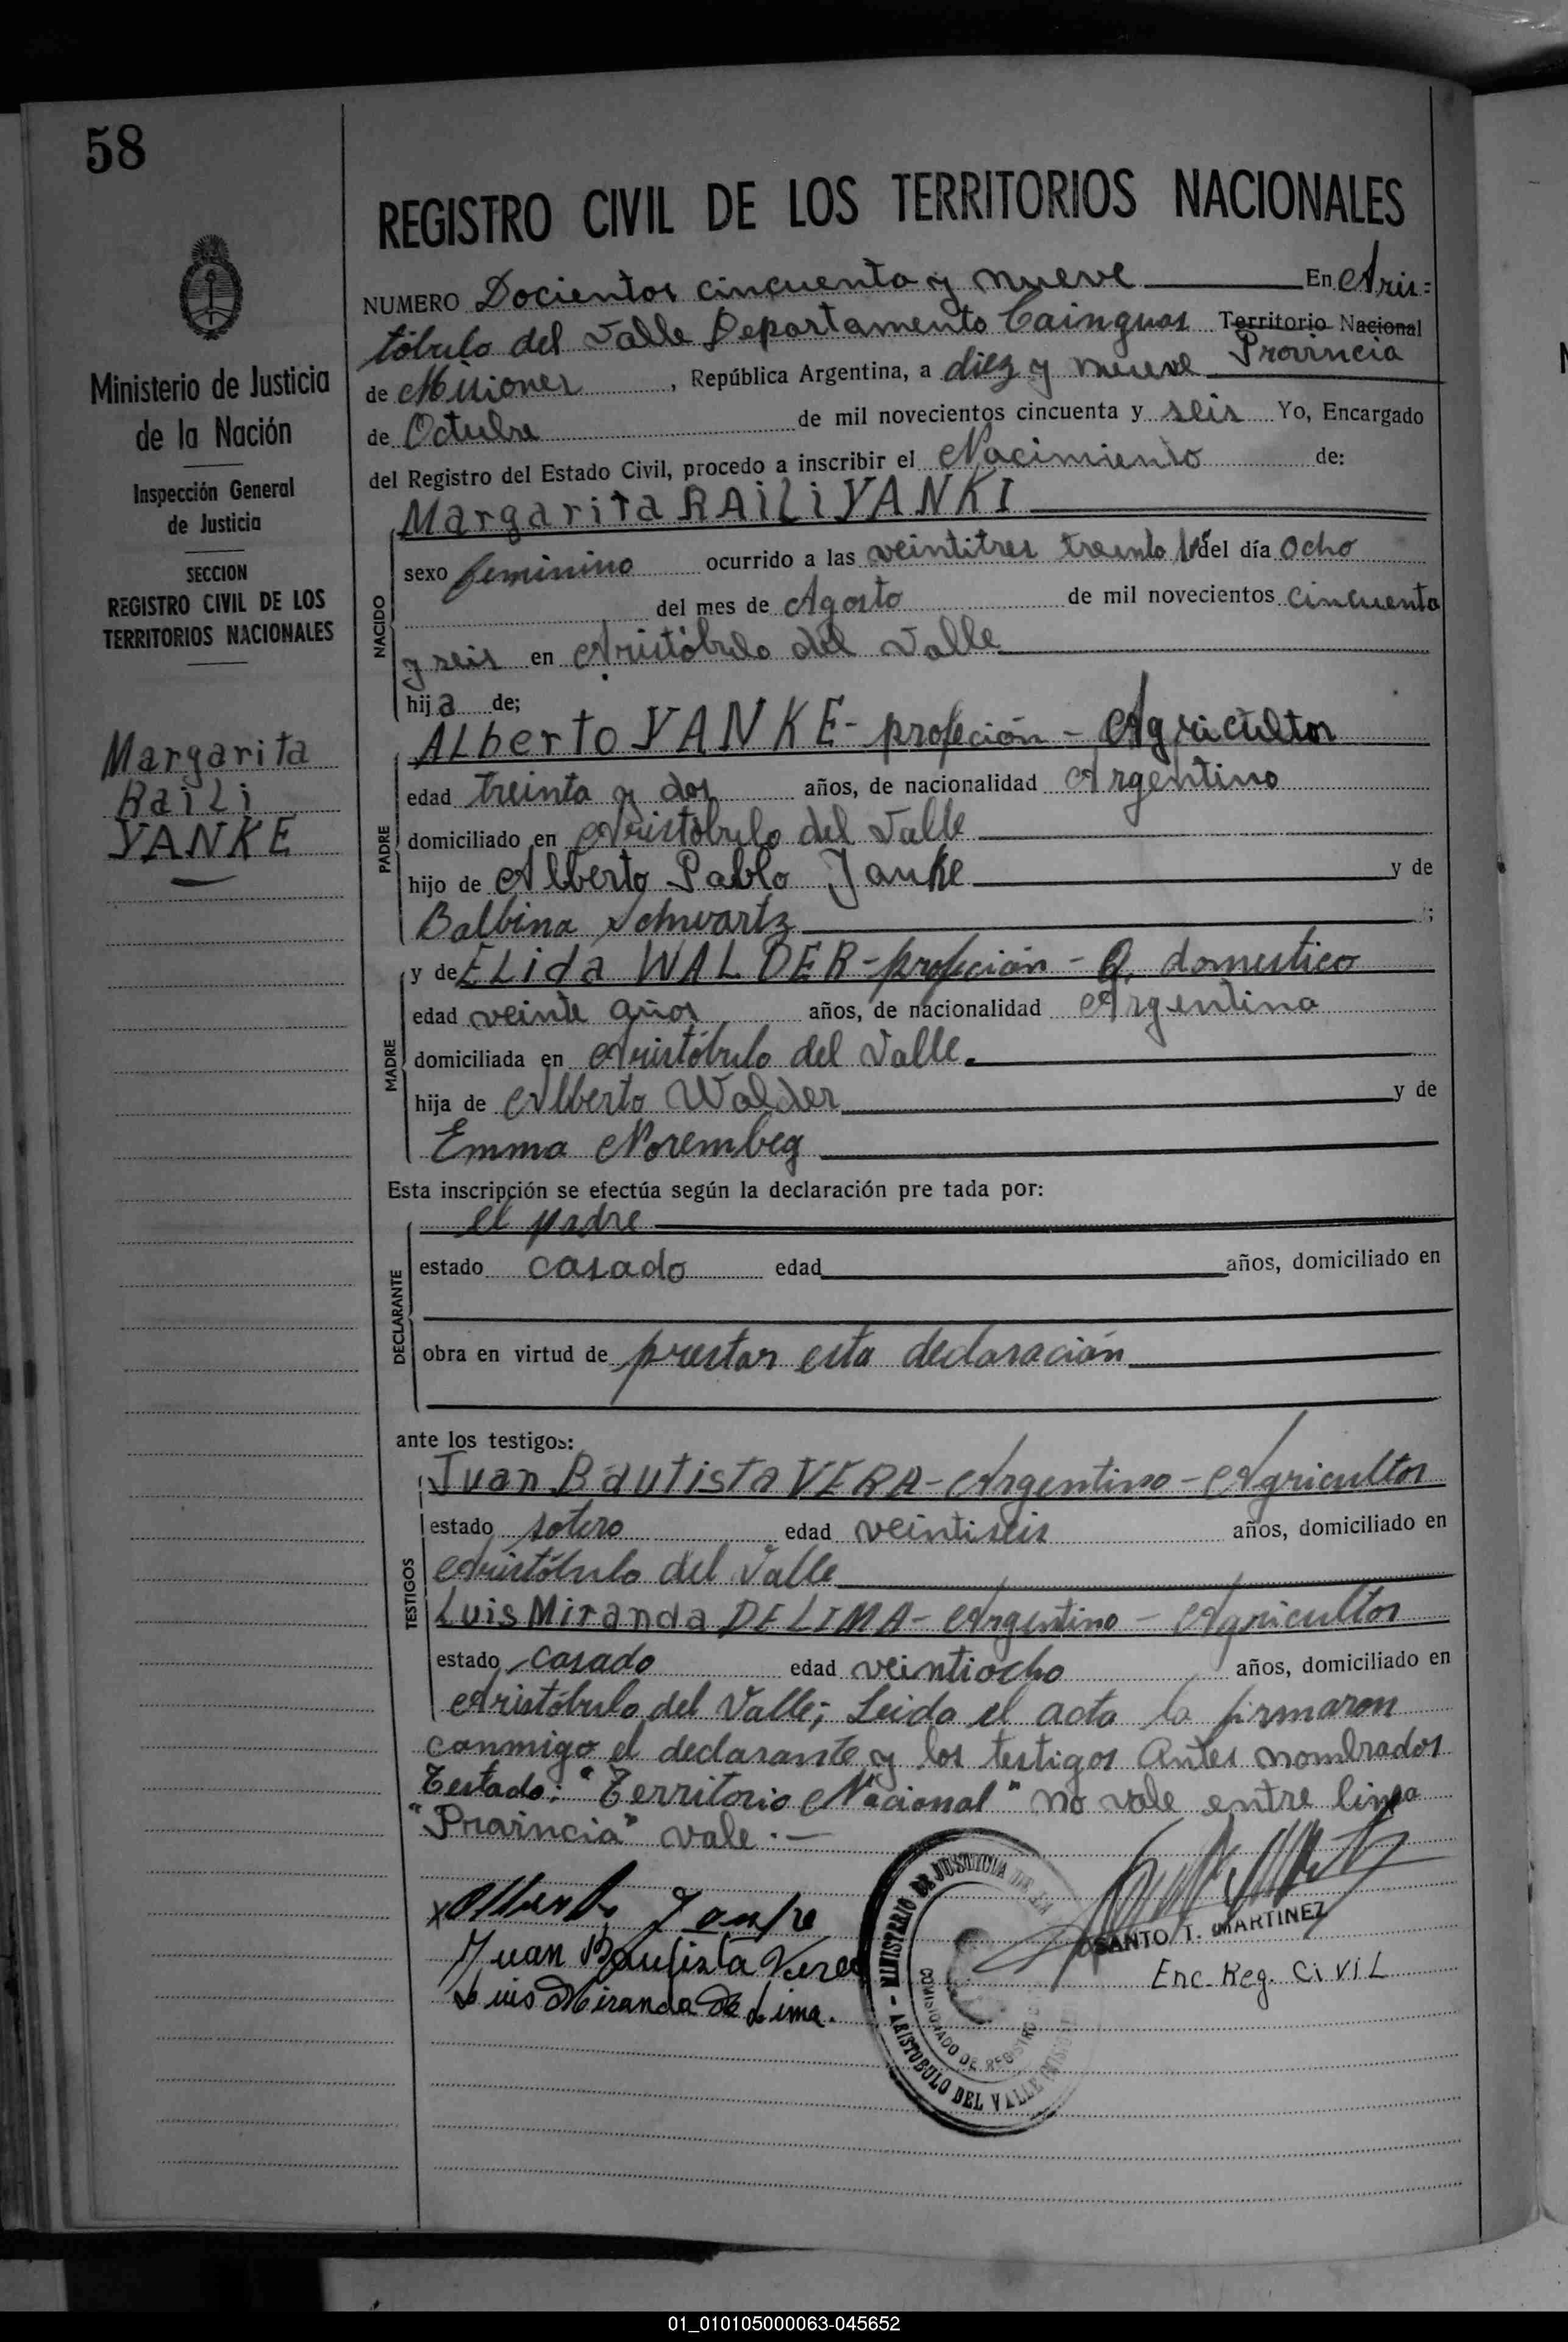 58
Ministerio de Justicia
de la Nación
Inspección General
de Justicia
SECCION
REGISTRO CIVIL DE LOS
TERRITORIOS NACIONALES
Margarita
Raili
YANKE
REGISTRO CIVIL DE LOS TERRITORIOS NACIONALES
NUMERO Docientos cincuenta y nueve En Aris=
tóbulo del Valle Departamento Cainguas Territorio Nacional
Provincia
de Misiones, República Argentina, a diez y nueve
de Octubre de mil novecientos cincuenta y seis Yo, Encargado
del Registro del Estado Civil, procedo a inscribir el Nacimiento de:
Margarita RAiLi YANKI
NACIDO
sexo femenino ocurrido a las veintitres treinta del día ocho
del mes de Agosto de mil novecientos cincuenta
y seis en Aristóbulo del Valle
hija de;
PADRE
ALberto YANKE - profeción - Agricultor
edad treinta y dos años, de nacionalidad Argentino
domiciliado en Aristóbulo del Valle
hijo de Alberto Pablo Janke y de
Balbina Schwartz;
MADRE
y de ELida WALDER - profeción - Q. domestico
edad veinte años años, de nacionalidad Argentina
domiciliada en Aristóbulo del Valle.
hija de Alberto Walder y de
Emma Norembeg
Esta inscripción se efectúa según la declaración pre tada por:
DECLARANTE
el padre
estado casado edad años, domiciliado en
obra en virtud de prestar esta declaración
ante los testigos:
TESTIGOS
Juan Bautista VERA - Argentino - Agricultor
estado sotero edad veintiseis años, domiciliado en
Aristóbulo del Valle
Luis Miranda DE LIMA - Argentino - Agricultor
estado casado edad veintiocho años, domiciliado en
Aristóbulo del Valle; Leida el acta la firmaron
conmigo el declarante y los testigos antes nombrados
Testado: "Territorio Nacional" no vale entre linea
"Provincia" vale.-
x Alberto Janke
Juan Bautista Vera
Luis Miranda De Lima.
MINISTERIO DE JUSTICIA DE LA
COMISIONADO DE REGISTRO
ARISTOBULO DEL VALLE
SANTO T. MARTINEZ
Enc. Reg. CiViL
01_010105000063-045652